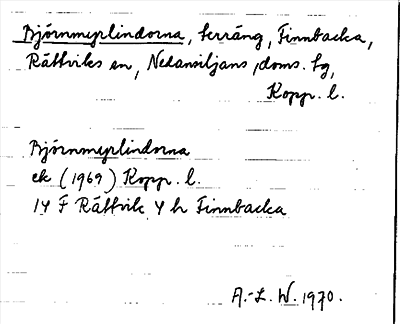 Björnmyrlindorna, terräng, Finnbacka,
Rättviks sn, Nedansiljans doms. tg,
Kopp. l.
Björnmyrlindorna
ek (1969) Kopp. l.
14 F Rättvik 4 h Finnbacka
A.-L. W. 1970.